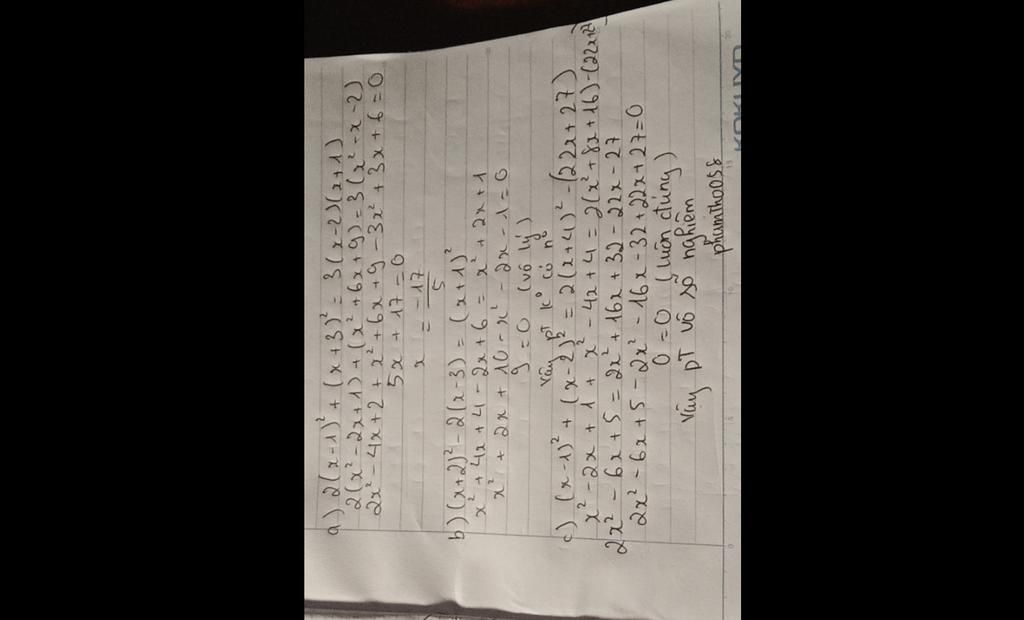 a) 2(x-1)² + (x+3)² = 3(x-2)(x+1)
2(x²-2x+1) + (x²+6x+9) = 3(x²-x-2)
2x²-4x+2 + x²+6x+9 - 3x²+3x+6 = 0
5x + 17 = 0
x = -17/5
b) (x+2)² - 2(x-3) = (x+1)²
x²+4x+4-2x+6 = x²+2x+1
x²+2x+10-x²-2x-1=0
9=0 (vô lý)
Vậy PT k° có n°
c) (x-1)² + (x-2)² = 2(x+4)² - (22x+27)
x²-2x+1 + x²-4x+4 = 2(x²+8x+16)-(22x+27)
2x²-6x+5 = 2x²+16x+32-22x-27
2x²-6x+5-2x²-16x-32+22x+27=0
0=0 (luôn đúng)
Vậy PT vô số nghiệm
phamtha058